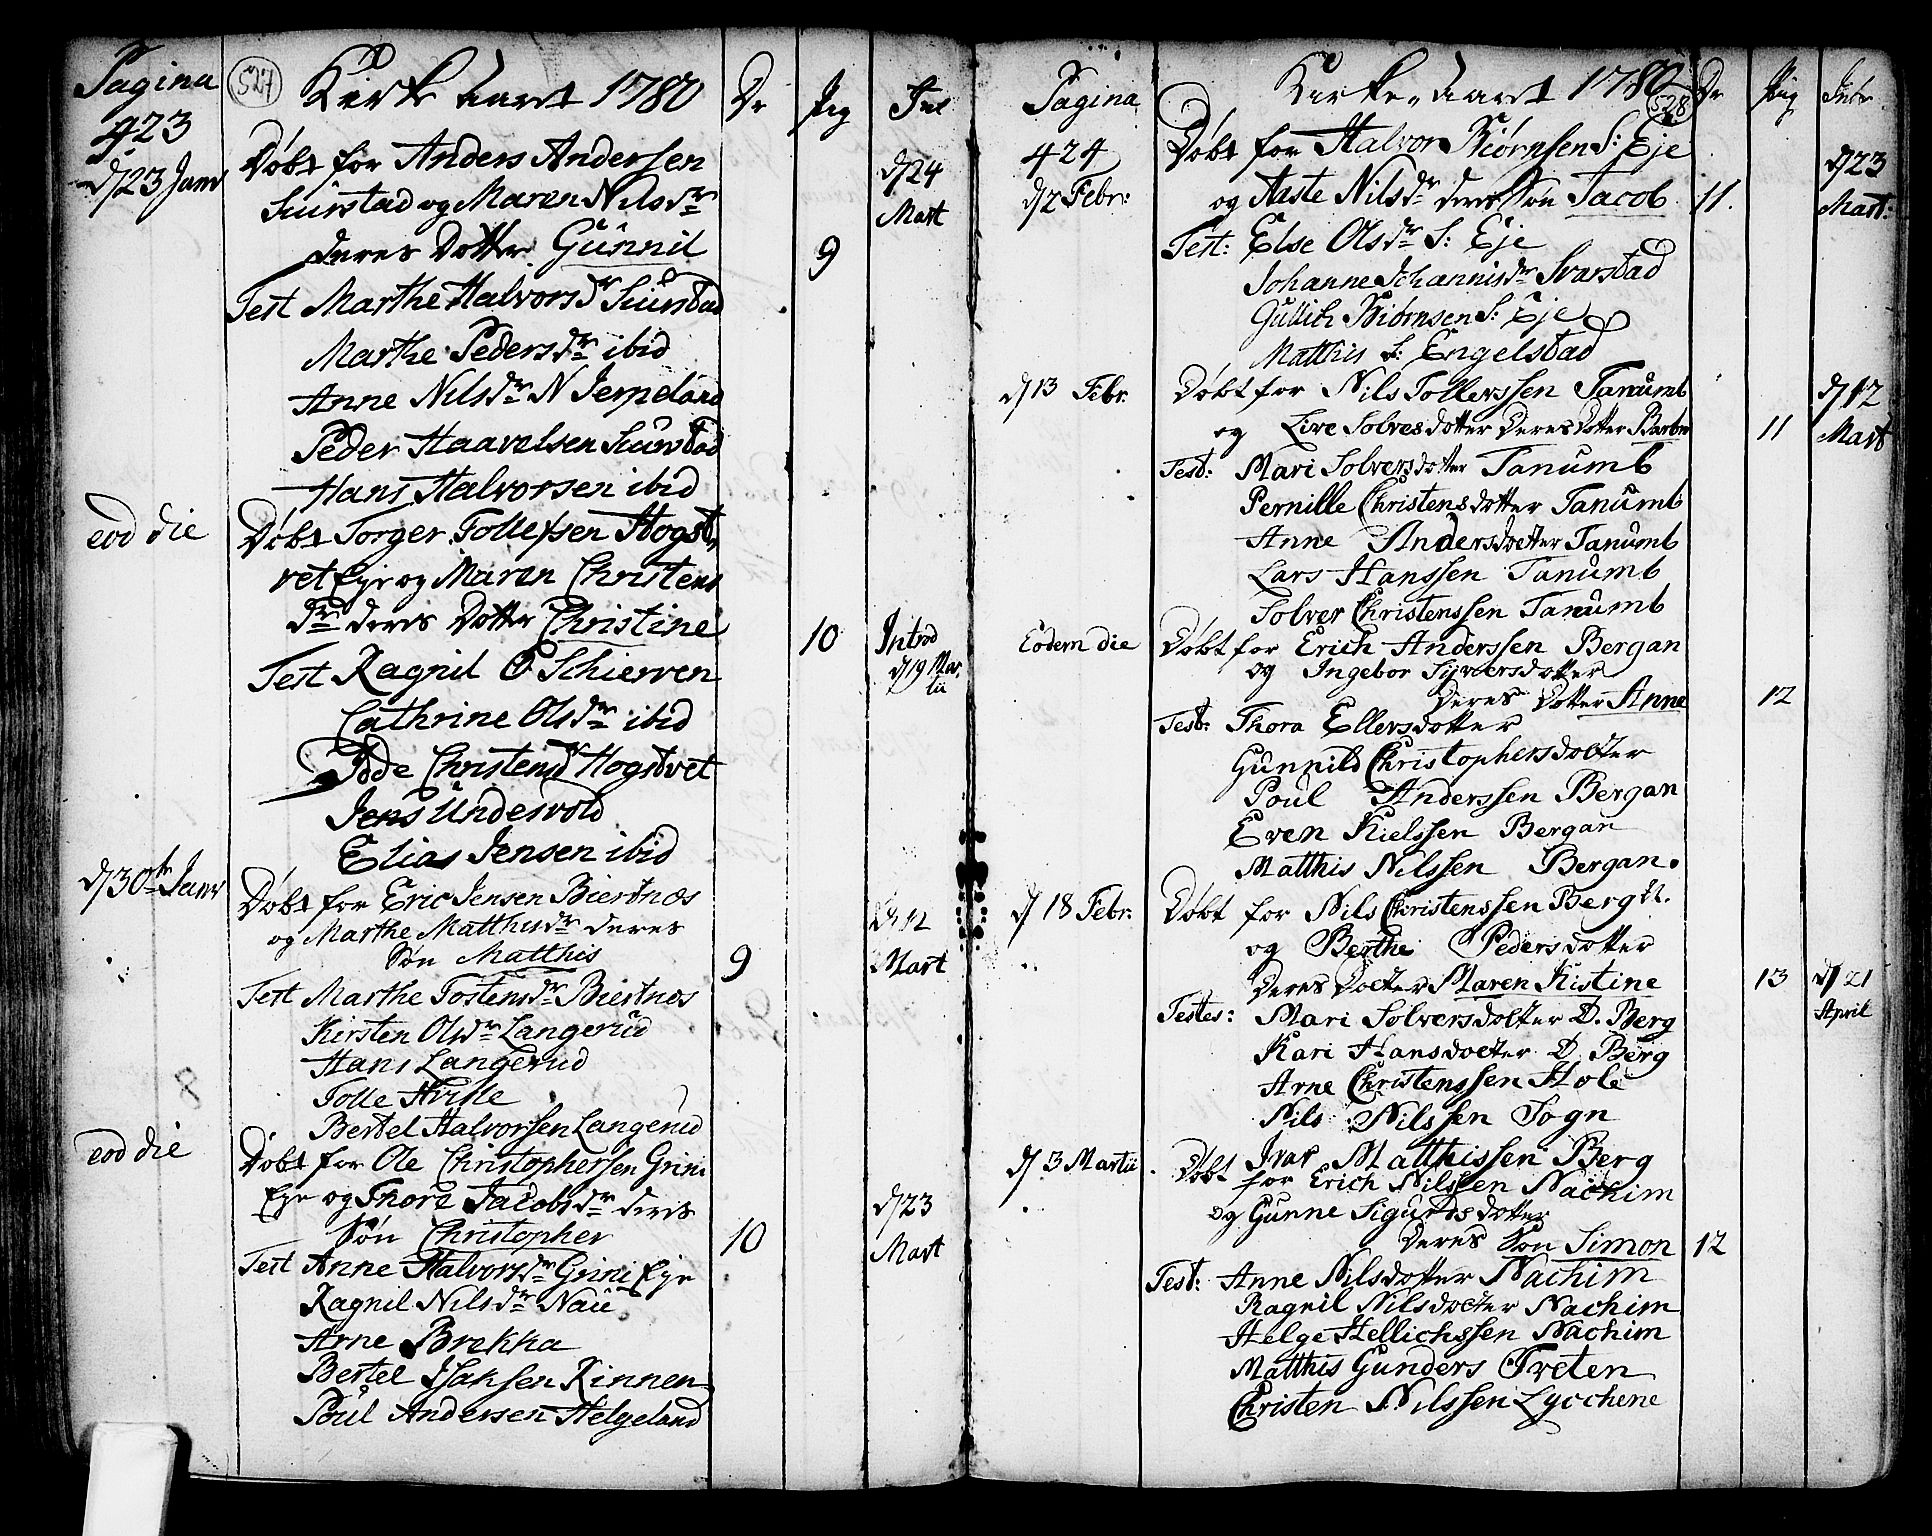 Pagina
423
527
Kirke aaret 1780
Dr
Pig
Int
d/23 Janv
Døbt for Anders Andersen
Siurstad og Maren Nils dr
deres Dotter Gunnil
9
d/24
Mart
Test Marthe Halvors dr Siurstad
Marthe Peders dr ibid
Anne Nils dr N Jerpeland
Peder Haavelsen Siurstad
Hans Halvorsen ibid
eod die
Døbt Torger Tollefsen Hogst
vet Eje og Maren Christens
dr deres Dotter Christine
10
Introd
d/19 Mar
tii
Test Ragnil O Schierven
Cathrine Ols dr ibid
Christens dr Hogstvet
Jens Undersvold
Elias Jensen ibid
d/30te Janv
Døbt for Eric Jensen Biertnæs
og Marthe Matthis dr deres
Søn Matthis
9
12
Mart
Test Marthe Tostens dr Biertnæs
Kirsten Ols dr Langerud
Hans Langerud
Tolle Hvile
Bertel Halvorsen Langerud
8
eod die
Døbt for Ole Christophersen Grini
Eje og Thore Jacobs dr deres
Søn Christopher
10
d/23
Mart
Test Anne Halvors dr Grini Eje
Ragnil Nils dr Naü
Arne Brekka
Bertel Isaksen Rinnen
Poul Andersen Helgeland
Pagina
424
Kirke-aaret 1780
528
Dr
Pig
Intr
d/2 Febr:
Døbt for Halvor Biørnsen S: Eje
og Aaste Nils dr deres Søn Jacob
11.
d/23
Mart:
Test: Else Ols dr S: Eje
Johanne Johannis dr Svarstad
Gullich Biørnsen S: Eje
Matthis S: Engelstad
d/13 Febr.
Døbt for Nils Tollerssen Tanumb
og Live Solvesdotter Deres Dotter Barbro
11
d/12
Mart
Test: Mari Solversdotter Tanumb
Pernille Christensdotter Tanumb
Anne Andersdotter Tanumb
Lars Hanssen Tanumb
Solver Christenssen Tanumb
Eodem die
Døbt for Erich Anderssen Bergan
og Ingebor Syversdotter
Deres Dotter Anne
12
Test: Thora Ellersdotter
Gunnild Christophersdotter
Poul Anderssen Bergan
Even Kielssen Bergan
Matthis Nilssen Bergan.
d/ 18 Febr.
Døbt for Nils Christenssen Berg N.
og Berthe Pedersdotter
Deres Dotter Maren Kistine
13
d/21
April
Testes: Mari Solversdotter D. Berg
Kari Hansdotter D. Berg
Arne Christenssen Hole
Nils Nilssen Sogn
Ivar Matthissen Berg
d/ 3 Martii
Døbt for Erich Nilssen Nachim
og Gunne Sigurdsdotter
Deres Søn Simon
12
Test: Anne Nilsdotter Nachim
Ragnil Nilsdotter Nachim
Helge Hellichssen Nachim
Matthis Gunders Treten
Christen Nilssen Lycchene